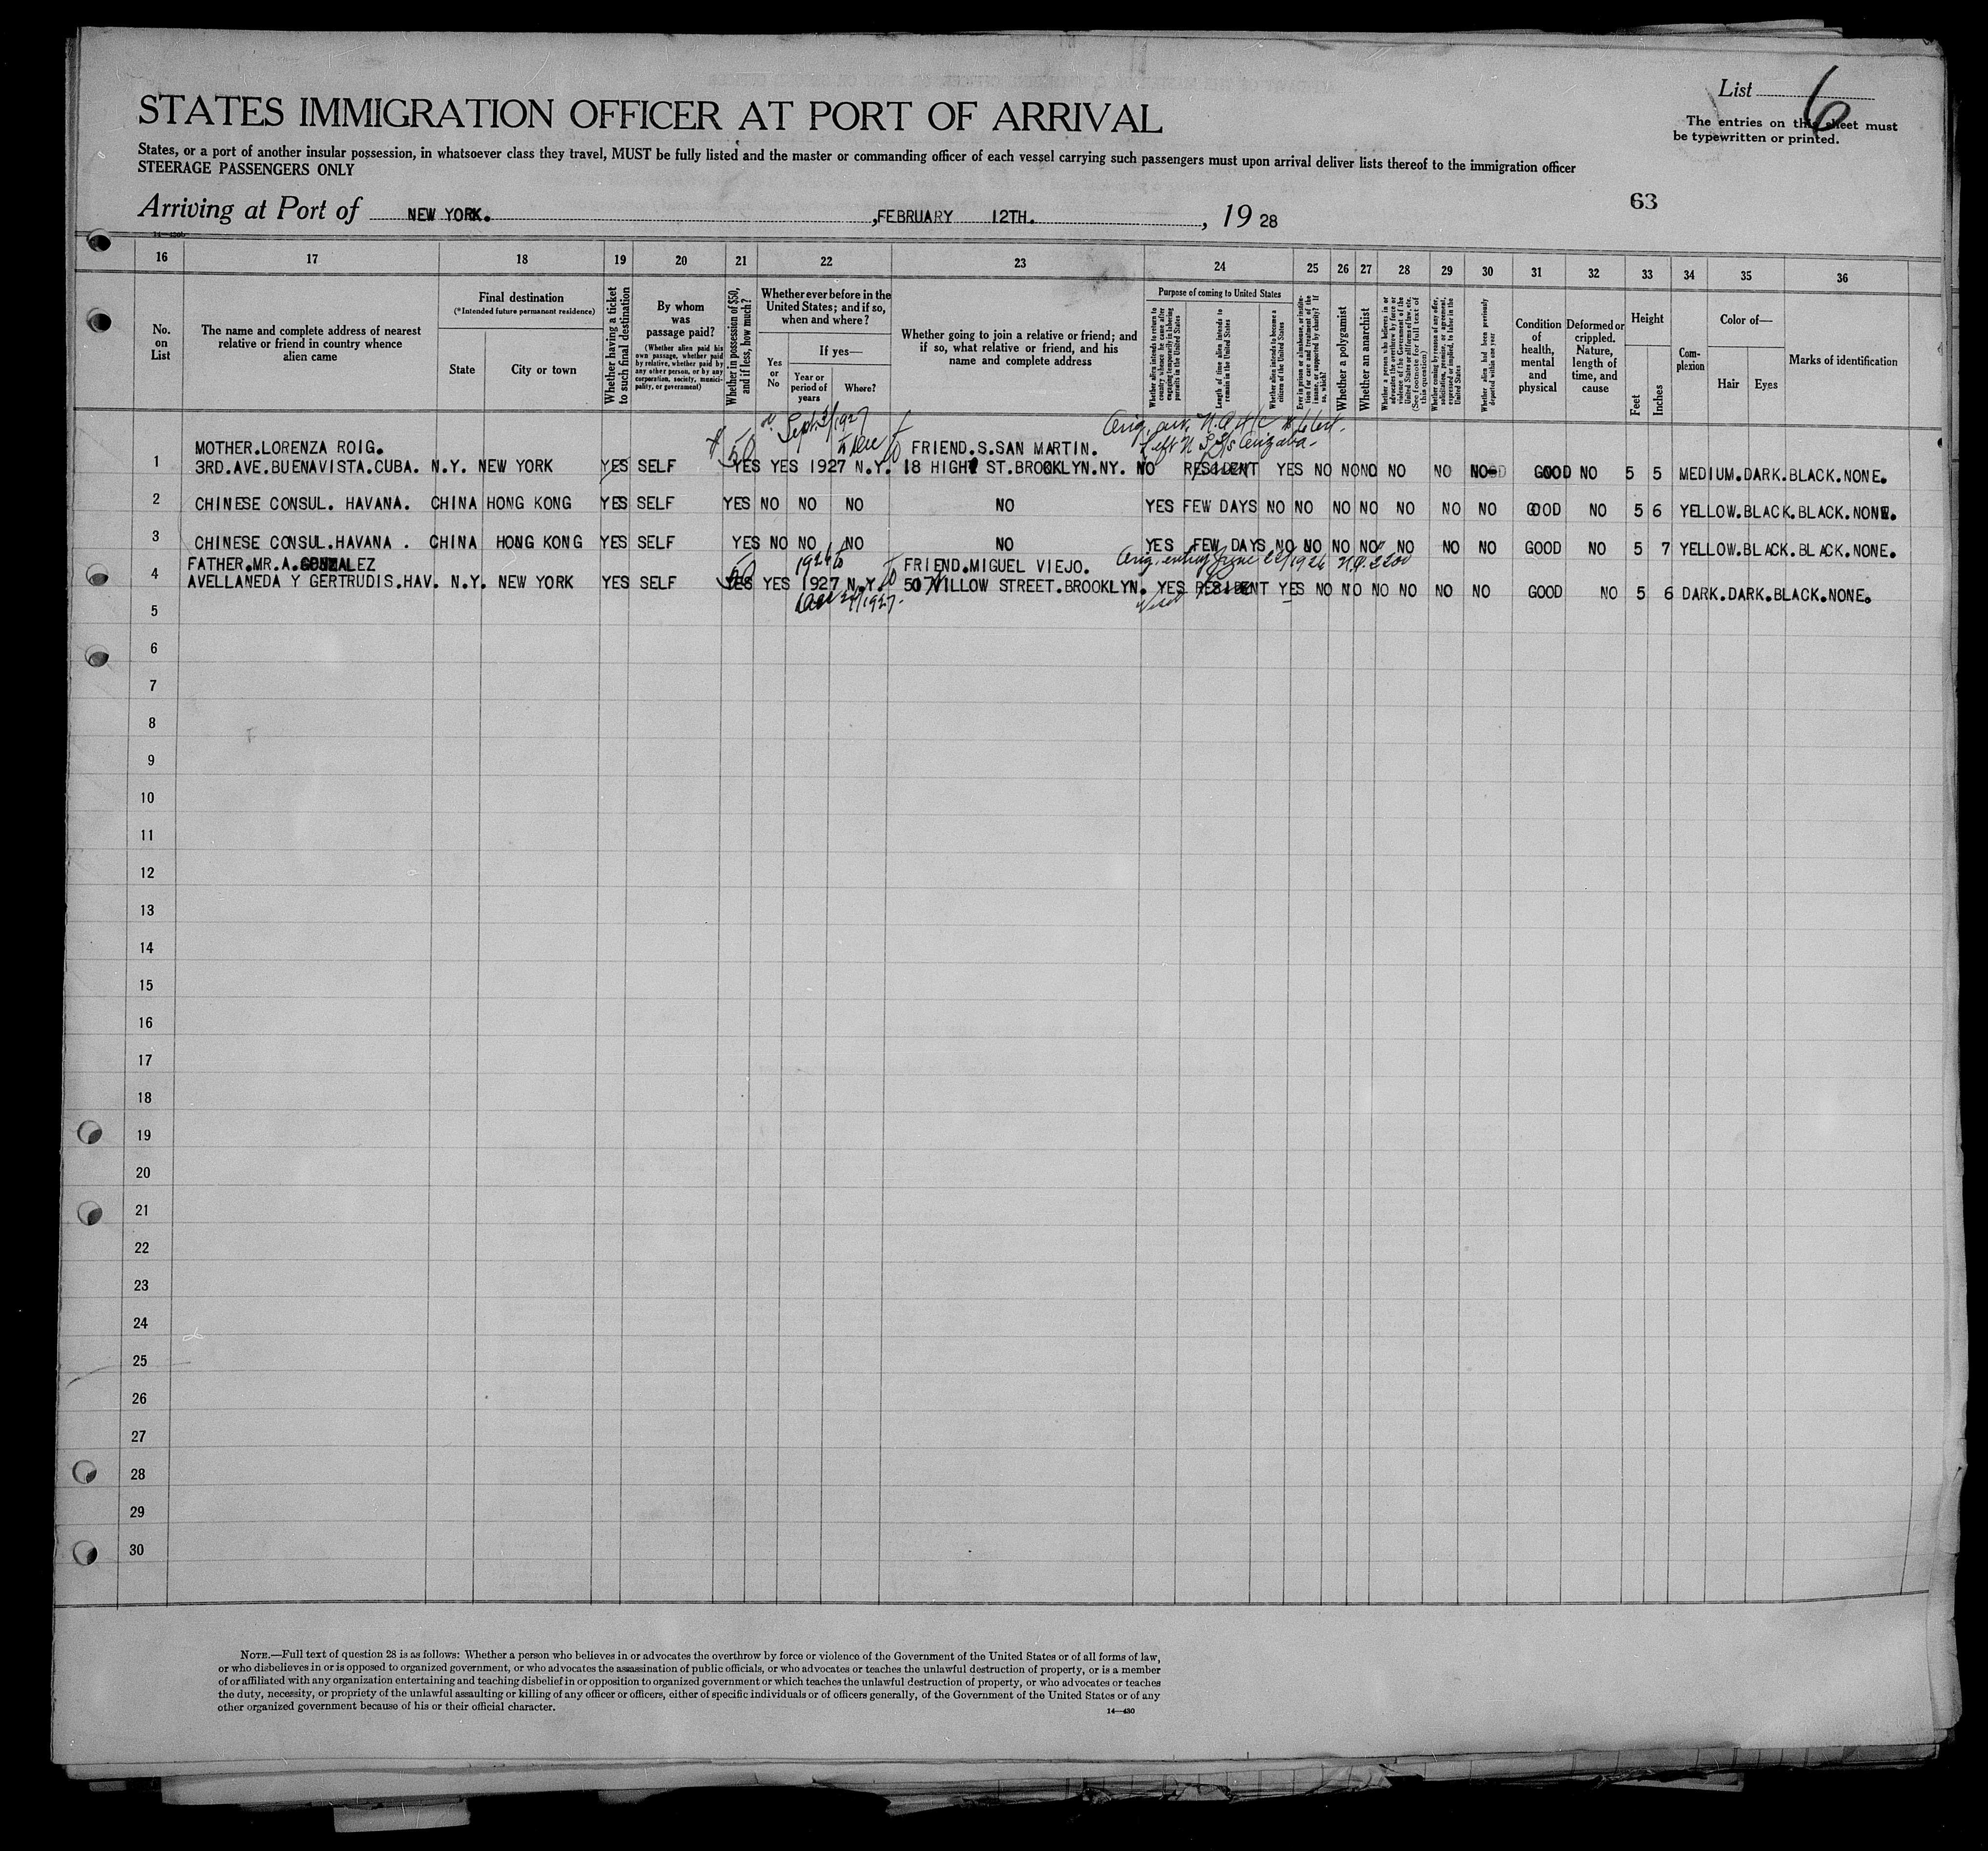 List 6
The entries on this sheet must
be typewritten or printed.
STATES IMMIGRATION OFFICER AT PORT OF ARRIVAL
States, or a port of another insular possession, in whatsoever class they travel, MUST be fully listed and the master or commanding officer of each vessel carrying such passengers must upon arrival deliver lists thereof to the immigration officer
STEERAGE PASSENGERS ONLY
63
Arriving at Port of NEW YORK. , FEBRUARY 12TH. , 19 28
16 17 18 19 20 21 22 23 24 25 26 27 28 29 30 31 32 33 34 35 36
No. on List
The name and complete address of nearest relative or friend in country whence alien came
Final destination
(*Intended future permanent residence)
State
City or town
Whether having a ticket to such final destination
By whom was passage paid?
(Whether alien paid his own passage, whether paid by relative, whether paid by any other person, or by any corporation, society, municipality, or government)
Whether in possession of $50, and if less, how much?
Whether ever before in the United States; and if so, when and where?
Yes or No
If yes—
Year or period of years
Where?
Whether going to join a relative or friend; and if so, what relative or friend, and his name and complete address
Purpose of coming to United States
Whether alien intends to return to country whence he came after engaging temporarily in laboring pursuits in the United States
Length of time alien intends to remain in the United States
Whether alien intends to become a citizen of the United States
Ever in prison or almshouse, or institution for care and treatment of the insane, or supported by charity? If so, which?
Whether a polygamist
Whether an anarchist
Whether a person who believes in or advocates the overthrow by force or violence of the Government of the United States or all forms of law, etc. (See footnote for full text of this question)
Whether coming by reason of any offer, solicitation, promise, or agreement, expressed or implied, to labor in the United States
Whether alien had been previously deported within one year
Condition of health, mental and physical
Deformed or crippled. Nature, length of time, and cause
Height
Feet
Inches
Complexion
Color of—
Hair
Eyes
Marks of identification
Sept 3/1927
Dec
50
MOTHER.LORENZA ROIG. FRIEND.S.SAN MARTIN.
1 3RD.AVE.BUENAVISTA.CUBA. N.Y. NEW YORK YES SELF YES YES 1927 N.Y. 18 HIGH ST.BROOKLYN.NY. NO RESIDENT YES NO NO NO NO NO NO GOOD NO 5 5 MEDIUM.DARK.BLACK.NONE.
2 CHINESE CONSUL. HAVANA. CHINA HONG KONG YES SELF YES NO NO NO NO YES FEW DAYS NO NO NO NO NO NO NO GOOD NO 5 6 YELLOW.BLACK.BLACK.NONE.
3 CHINESE CONSUL.HAVANA . CHINA HONG KONG YES SELF YES NO NO NO NO YES FEW DAYS NO NO NO NO NO NO NO GOOD NO 5 7 YELLOW.BLACK.BLACK.NONE.
50 1926 to Orig. entry June 22/1926
FATHER.MR.A.GONZALEZ FRIEND.MIGUEL VIEJO.
4 AVELLANEDA Y GERTRUDIS.HAV. N.Y. NEW YORK YES SELF YES YES 1927 N.Y. 50 WILLOW STREET.BROOKLYN. YES RESIDENT YES NO NO NO NO NO NO GOOD NO 5 6 DARK.DARK.BLACK.NONE.
5
6
7
8
9
10
11
12
13
14
15
16
17
18
19
20
21
22
23
24
25
26
27
28
29
30
NOTE.—Full text of question 28 is as follows: Whether a person who believes in or advocates the overthrow by force or violence of the Government of the United States or of all forms of law,
or who disbelieves in or is opposed to organized government, or who advocates the assassination of public officials, or who advocates or teaches the unlawful destruction of property, or is a member
of or affiliated with any organization entertaining and teaching disbelief in or opposition to organized government or which teaches the unlawful destruction of property, or who advocates or teaches
the duty, necessity, or propriety of the unlawful assaulting or killing of any officer or officers, either of specific individuals or of officers generally, of the Government of the United States or of any
other organized government because of his or their official character.
14—430